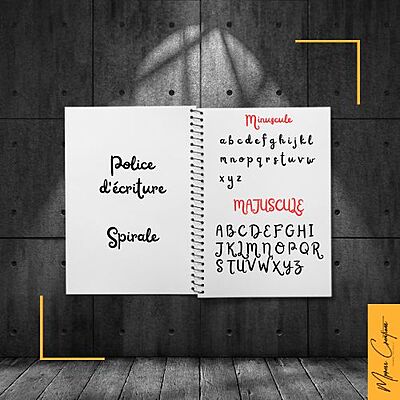 Police
d'écriture
Spirale
Minuscule
abcdefghijkl
mnopqrstuvw
xyz
MAJUSCULE
ABCDEFGHI
JKLMNOPQR
STUVWXYZ